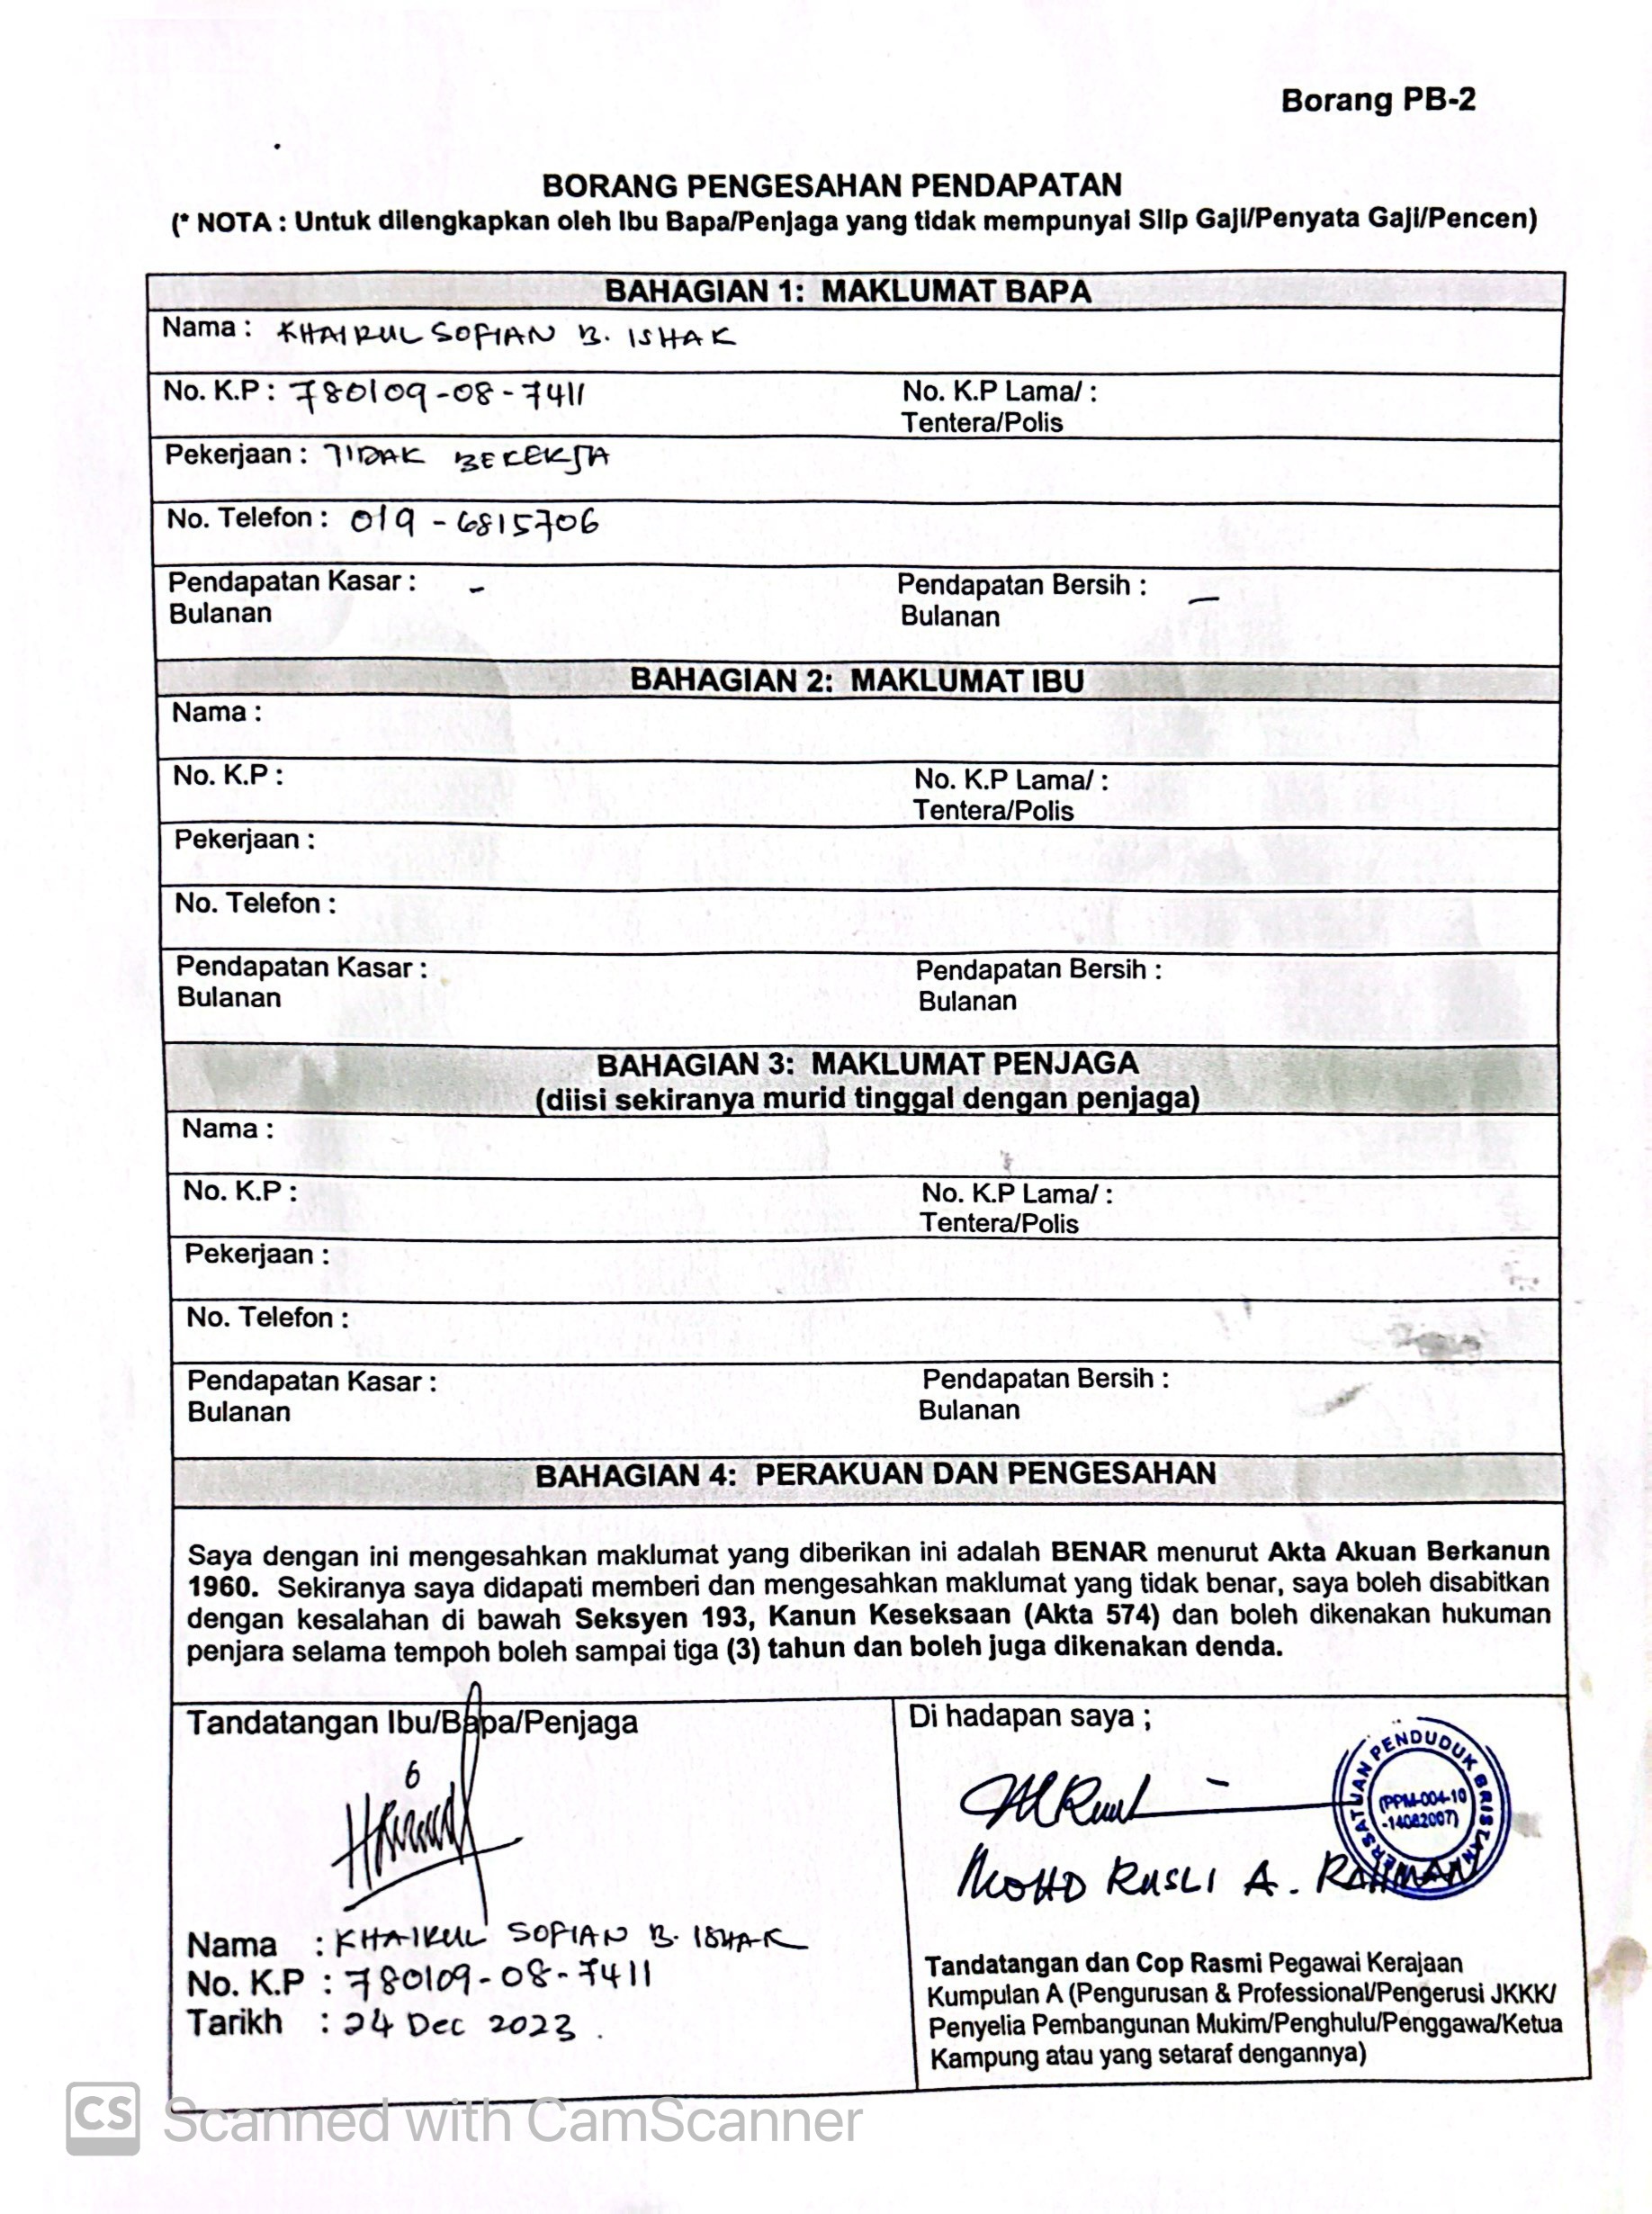 Borang PB-2
BORANG PENGESAHAN PENDAPATAN
(* NOTA : Untuk dilengkapkan oleh Ibu Bapa/Penjaga yang tidak mempunyai Slip Gaji/Penyata Gaji/Pencen)
BAHAGIAN 1: MAKLUMAT BAPA
Nama : KHAIRUL SOFIAN B. ISHAK
No. K.P : 780109-08-7411 No. K.P Lama/ :
Tentera/Polis
Pekerjaan : TIDAK BEKERJA
No. Telefon : 019 - 6815706
Pendapatan Kasar : - Pendapatan Bersih : -
Bulanan Bulanan
BAHAGIAN 2: MAKLUMAT IBU
Nama :
No. K.P : No. K.P Lama/ :
Tentera/Polis
Pekerjaan :
No. Telefon :
Pendapatan Kasar : Pendapatan Bersih :
Bulanan Bulanan
BAHAGIAN 3: MAKLUMAT PENJAGA
(diisi sekiranya murid tinggal dengan penjaga)
Nama :
No. K.P : No. K.P Lama/ :
Tentera/Polis
Pekerjaan :
No. Telefon :
Pendapatan Kasar : Pendapatan Bersih :
Bulanan Bulanan
BAHAGIAN 4: PERAKUAN DAN PENGESAHAN
Saya dengan ini mengesahkan maklumat yang diberikan ini adalah BENAR menurut Akta Akuan Berkanun
1960. Sekiranya saya didapati memberi dan mengesahkan maklumat yang tidak benar, saya boleh disabitkan
dengan kesalahan di bawah Seksyen 193, Kanun Keseksaan (Akta 574) dan boleh dikenakan hukuman
penjara selama tempoh boleh sampai tiga (3) tahun dan boleh juga dikenakan denda.
Tandatangan Ibu/Bapa/Penjaga
Nama : KHAIRUL SOFIAN B. ISHAK
No. K.P : 780109-08-7411
Tarikh : 24 Dec 2023 .
Di hadapan saya ;
PERSATUAN PENDUDUK
(PPM-004-10
-14082007)
MOHD RUSLI A. RAHMAN
Tandatangan dan Cop Rasmi Pegawai Kerajaan
Kumpulan A (Pengurusan & Professional/Pengerusi JKKK/
Penyelia Pembangunan Mukim/Penghulu/Penggawa/Ketua
Kampung atau yang setaraf dengannya)
CS Scanned with CamScanner